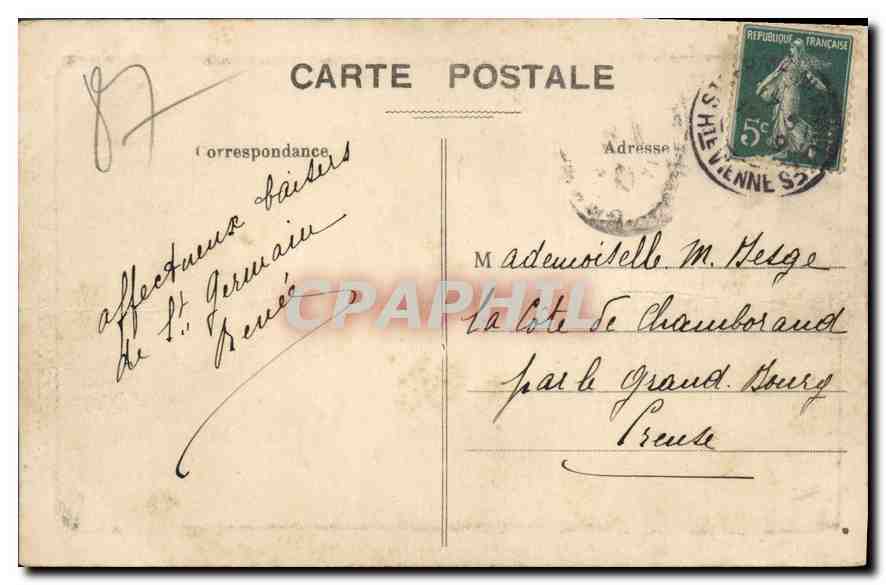 87
CARTE POSTALE
Correspondance
Adresse
REPUBLIQUE FRANÇAISE
5c
VIENNE
affectueux baisers
de St Germain
Renée
Mademoiselle. M. Desge
la Cote de Chamborand
par le Grand. Bourg
Creuse
CPAPHIL